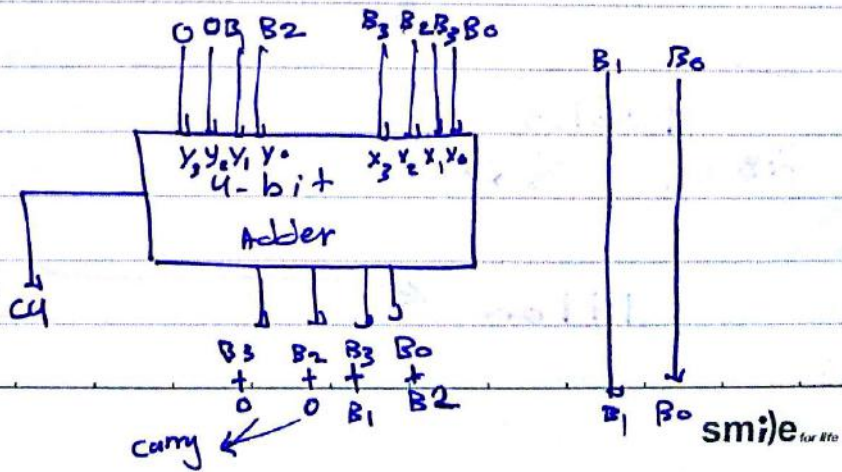 0 0 B1 B2 B3 B2 B3 B0 B1 B0
Y3 Y2 Y1 Y0 X3 X2 X1 X0
4-bit
Adder
C4
B3 B2 B3 B0
+ + + +
0 0 B1 B2 B1 B0
carry
smi;)e for life